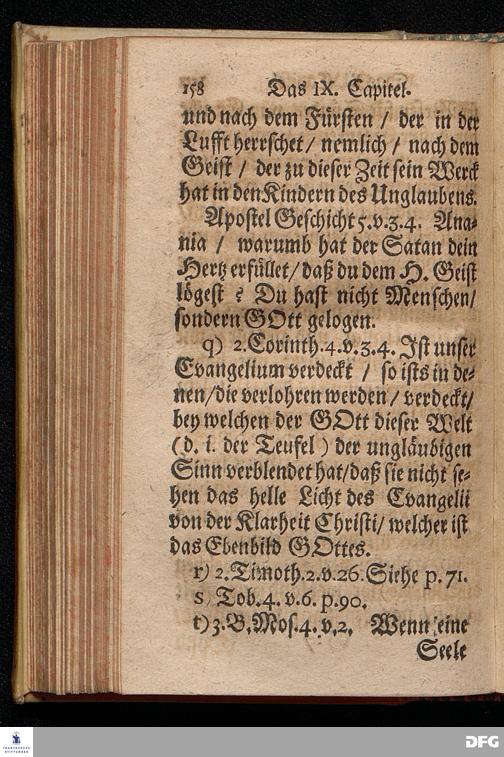 158 Das IX. Capitel.
und nach dem Fürsten / der in der
Lufft herrschet / nemlich / nach dem
Geist / der zu dieser Zeit sein Werck
hat in den Kindern des Unglaubens.
Apostel Geschicht 5. v. 3. 4. Ana-
nia / warumb hat der Satan dein
Hertz erfüllet / daß du dem H. Geist
lögest? Du hast nicht Menschen /
sondern GOtt gelogen.
q) 2. Corinth. 4. v. 3. 4. Ist unser
Evangelium verdeckt / so ists in de-
nen / die verlohren werden / verdeckt /
bey welchen der GOtt dieser Welt
(d. i. der Teufel) der ungläubigen
Sinn verblendet hat / daß sie nicht se-
hen das helle Licht des Evangelii
von der Klarheit Christi / welcher ist
das Ebenbild GOttes.
r) 2. Timoth. 2. v. 26. Siehe p. 71.
s) Tob. 4. v. 6. p. 90.
t) 3. B. Mos. 4. v. 2. Wenn eine
Seele
FRANCKESCHE
STIFTUNGEN
DFG